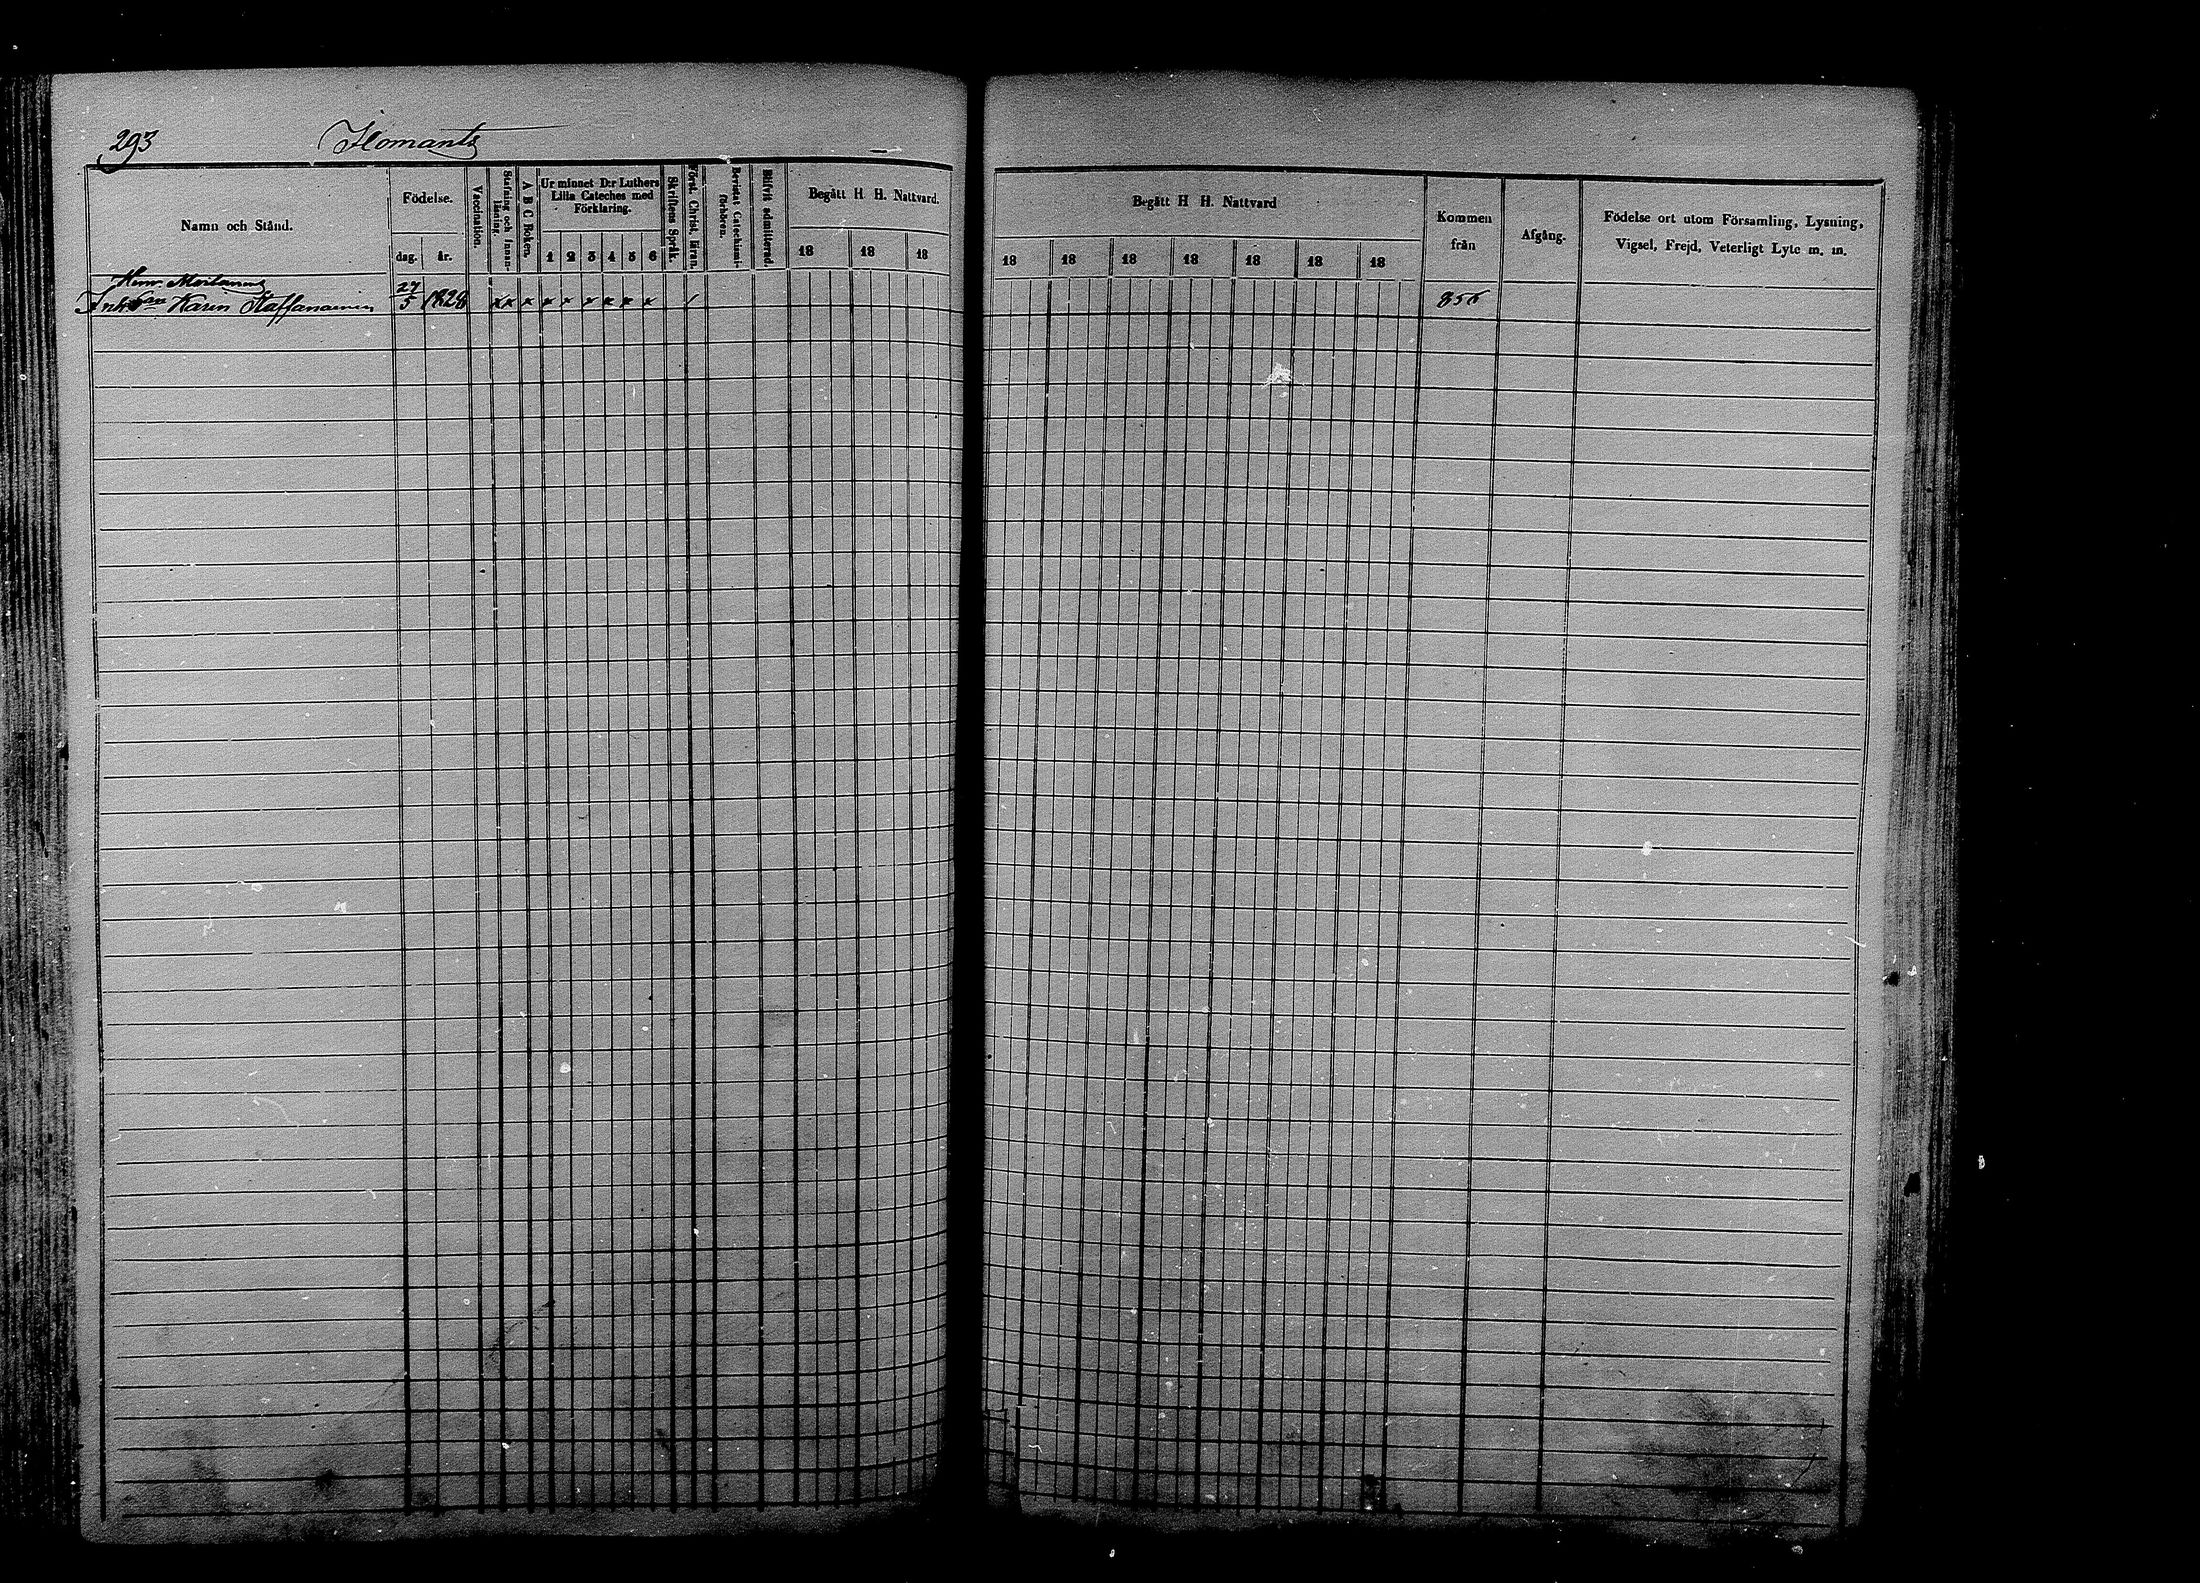 293 Ilomants
Namn och Stånd. Födelse. dag. år. Vaccination. Stafning och Innanläsning. A B C Boken. Ur minnet D:r Luthers Lilla Cateches med Förklaring. 1 2 3 4 5 6 Skriftens Språk. Först. Christ. läran. Bevistat Catechismiförhören. Blifvit admitterad. Begått H H. Nattvard. 18 18 18
Begått H H. Nattvard 18 18 18 18 18 18 18 Kommen från Afgång. Födelse ort utom Församling, Lysning, Vigsel, Frejd, Veterligt Lyte m. m.
Karin Staffanainen 27/5 1828 x x x x x x x x x / 856